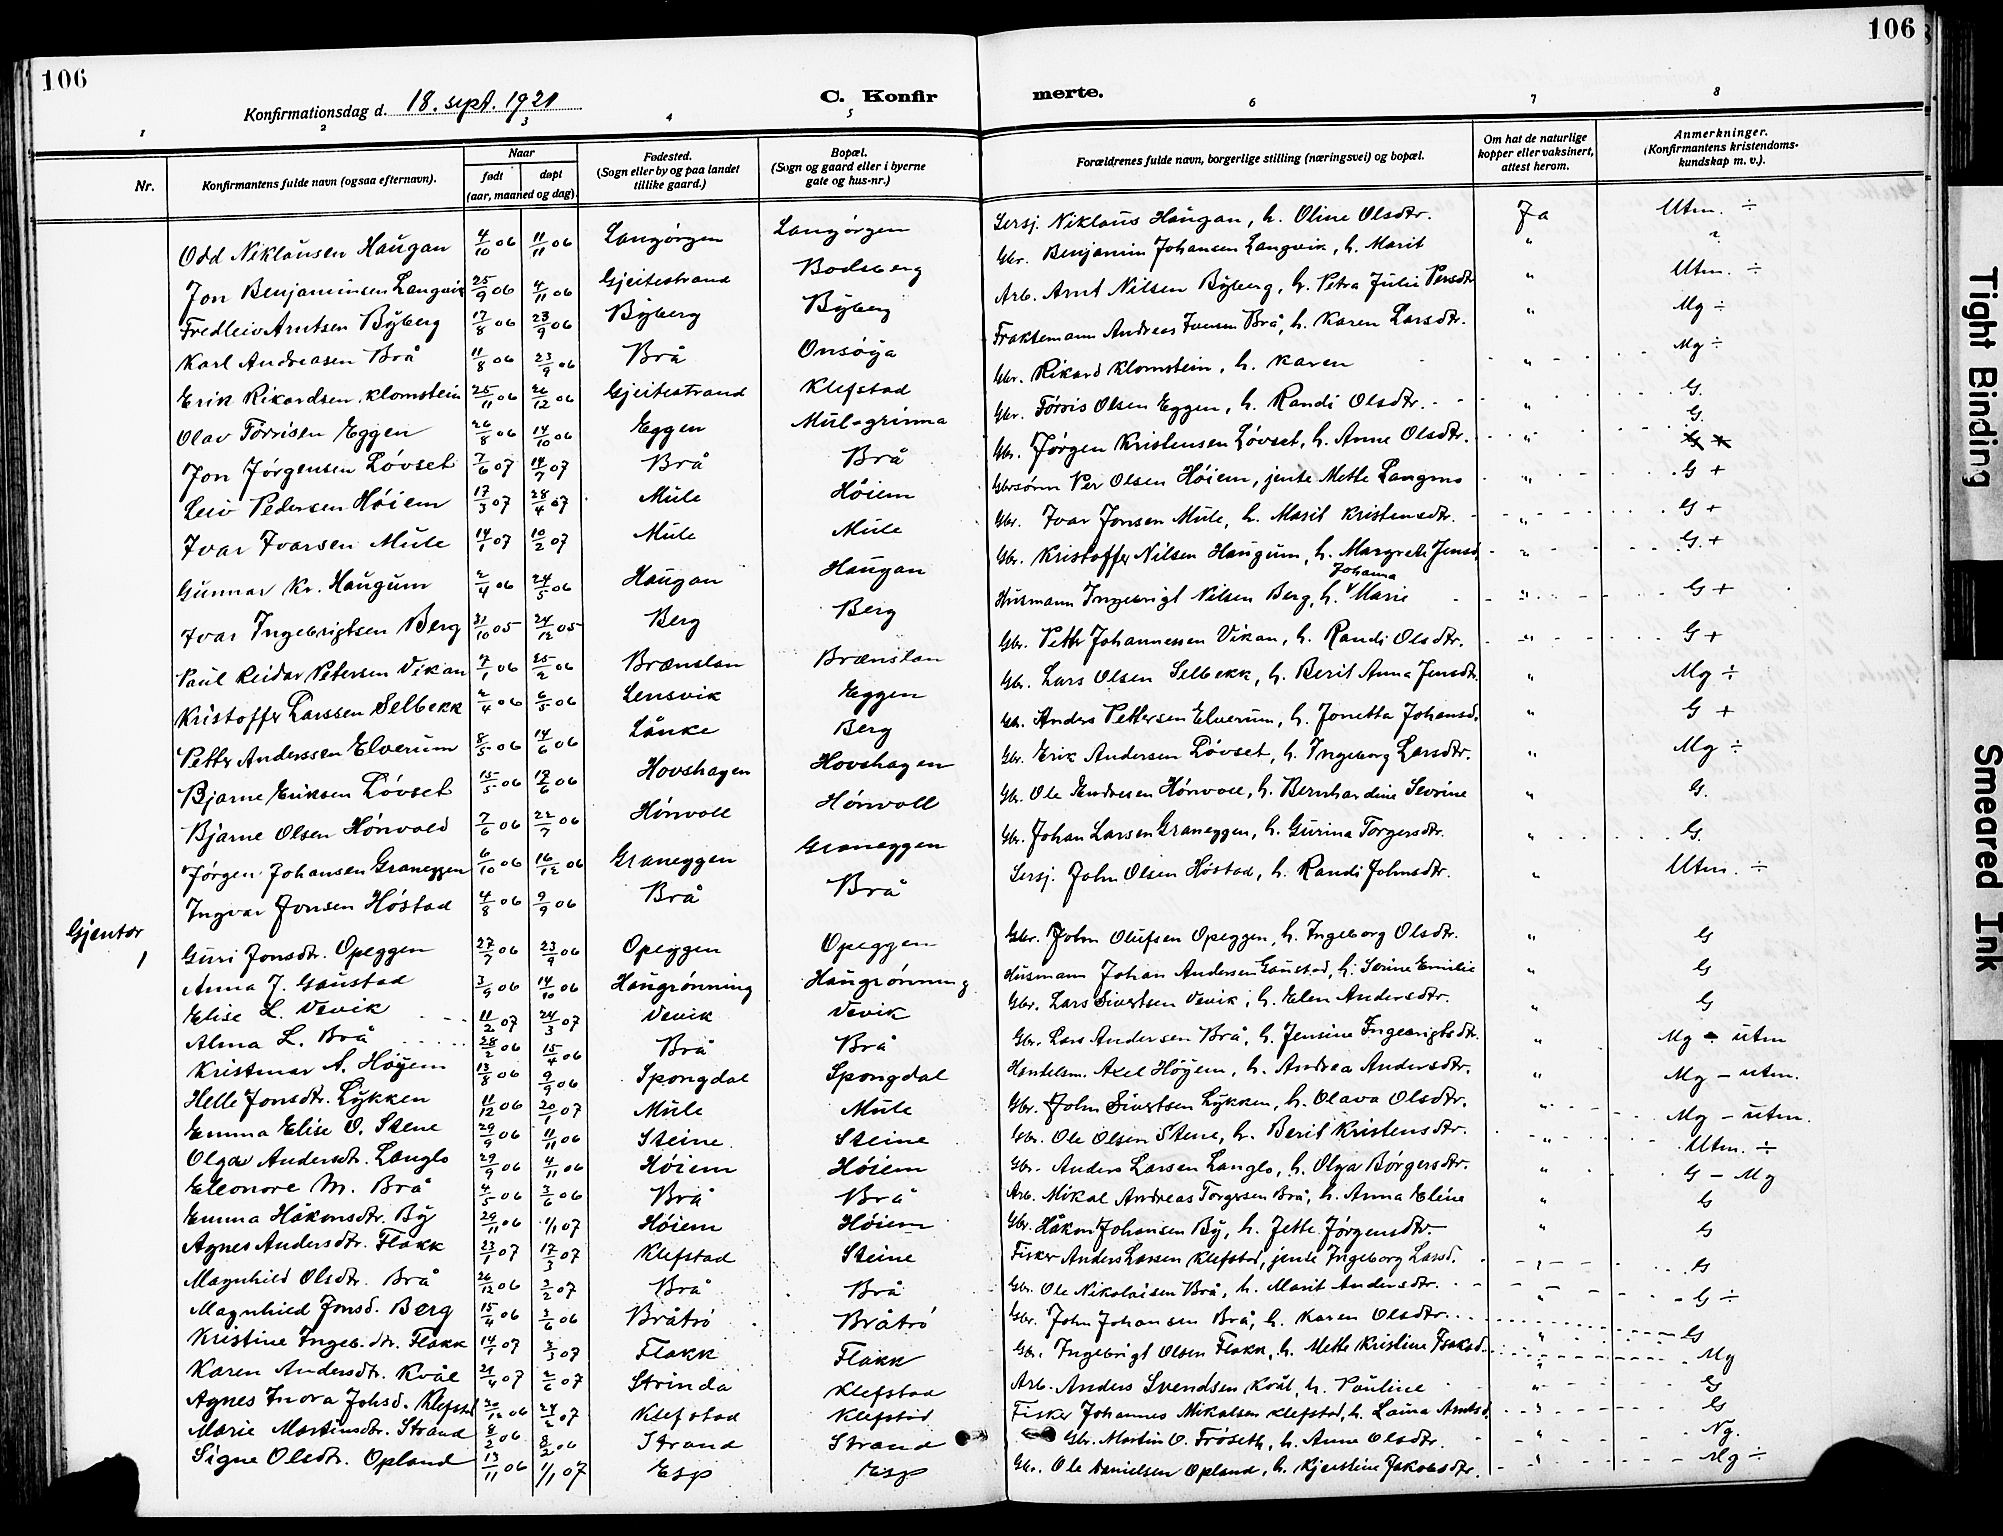 106
106
Konfirmationsdag d. 18. sept. 1921
C. Konfir
merte.
1 2 3 4 5 6 7 8
Nr.
Konfirmantens fulde navn (ogsaa efternavn).
Naar
født
døpt
(aar, maaned og dag)
Fødested.
(Sogn eller by og paa landet
tillike gaard.)
Bopæl.
(Sogn og gaard eller i byerne
gate og hus-nr.)
Forældrenes fulde navn, borgerlige stilling (næringsvei) og bopæl.
Om hat de naturlige
kopper eller vaksinert,
attest herom.
Anmerkninger.
(Konfirmantens kristendoms-
kundskap m. v.).
Odd Niklausen Haugan 4/10 06 11/11 06 Langørgen Langørgen Sersj. Niklaus Haugan, h. Oline Olsdtr. Ja Utm. ÷
Jon Benjaminsen Langvik 25/9 06 4/11 06 Gjeitestrand Bodsberg Gbr. Benjamin Johansen Langvik, h. Marit "
Fredleiv Arntsen Byberg 17/8 06 23/9 06 Byberg Byberg Arb. Arnt Nilsen Byberg, h. Petra Julie Persdtr " Utm. ÷
Karl Andreasen Brå 11/8 06 23/9 06 Brå Onsøya Fraktemann Andreas Iversen Brå, h. Karen Larsdtr. " Mg ÷
Erik Rikardsen Klomstein 25/11 06 26/12 06 Gjeitestrand Klefstad Gbr. Rikard Klomstein, h. Karen " Mg ÷
Olav Tørrisen Eggen 26/8 06 14/10 06 Eggen Mul-grinna Gbr. Tørris Olsen Eggen, h. Randi Olsdtr. " G.
Jon Jørgensen Løvset 7/6 07 14/7 07 Brå Brå Gbr. Jørgen Kristensen Løvset, h. Anne Olsdtr. " G.
Leiv Pedersen Høiem 17/3 07 28/4 07 Mule Høiem Gbrsønn Per Olsen Høiem, jente Mette Langmo " G +
Ivar Ivarsen Mule 14/1 07 10/2 07 Mule Mule Gbr. Ivar Jonsen Mule, h. Marit Kristensdtr. " G +
Gunnar Kr. Haugum 2/4 06 24/5 06 Haugan Haugan Gbr. Kristoffer Nilsen Haugum, h. Margrete Jensd. " G. +
Ivar Ingebrigtsen Berg 31/10 05 24/12 05 Berg Berg Husmann Ingebrigt Nilsen Berg, h. Johanna Marie " G +
Paul Reidar Petersen Vikan 7/1 06 25/2 06 Brænslan Brænslan Gbr. Petter Johannessen Vikan, h. Randi Olsdtr. " G +
Kristoffer Larssen Selbekk 2/4 06 6/5 06 Lensvik Eggen Gbr. Lars Olsen Selbekk, h. Berit Anna Jensdtr. " Mg ÷
Petter Anderssen Elverum 8/5 06 14/6 06 Lånke Berg Gb. Anders Pettersen Elverum, h. Jonetta Johansd. " G +
Bjarne Eriksen Løvset 15/5 06 17/6 06 Hovshagen Hovshagen Gbr. Erik Andersen Løvset, h. Ingeborg Larsdtr. " Mg ÷
Bjarne Olsen Hønvold 7/6 06 22/7 06 Hønvoll Hønvoll Gbr. Ole Endresen Hønvoll, h. Bernhardine Sevrine " G.
Jørgen Johansen Graneggen 6/10 06 16/12 06 Graneggen Graneggen Gbr. Johan Larsen Graneggen, h. Gurina Torgersdtr. " G.
Ingvar Jonsen Høstad 4/8 06 9/9 06 Brå Brå Sersj. John Olsen Høstad, h. Randi Johnsdtr. " Utm. ÷
Gjentor
1 Guri Jonsdtr. Opeggen 27/7 06 23/9 06 Opeggen Opeggen Gbr. John Olufsen Opeggen, h. Ingeborg Olsdtr. " G
Anna J. Gaustad 3/9 06 14/10 06 Haugrønning Haugrønning Husmann Johan Andersen Gaustad, h. Serine Emilie " G
Elise L. Vevik 11/2 07 24/3 07 Vevik Vevik Gbr. Lars Sivertsen Vevik, h. Elen Andersdtr. " G
Alma L. Brå 28/2 06 15/4 06 Brå Brå Gbr. Lars Andersen Brå, h. Jensine Ingebrigtsdtr. " Mg - utm
Kristmar A. Høyem 13/8 06 9/9 06 Spongdal Spongdal Handelsm. Axel Høyem, h. Andrea Andersdtr. " Mg - utm.
Helle Jonsdtr. Lykken 11/12 06 20/1 07 Mule Mule Gbr. John Sivertsen Lykken, h. Olava Olsdtr. " Mg - utm.
Emma Elise O. Stene 29/9 06 11/11 06 Steine Steine Gbr. Ole Olsen Stene, h. Berit Kristensdtr. " Utm. ÷
Olga Andersdtr. Langlo 29/9 06 4/11 06 Høiem Høiem Gbr. Anders Larsen Langlo, h. Olga Børgersdtr. " G - Mg
Eleonore M. Brå 4/5 06 3/6 06 Brå Brå Arb. Mikal Andreas Torgersen Brå, h. Anna Eline " G
Emma Håkonsdtr. By 29/11 06 1/1 07 Høiem Høiem Gbr. Håkon Johansen By, h. Jette Jørgensdtr. " G
Agnes Andersdtr. Flakk 23/1 07 17/3 07 Klefstad Steine Fisker Anders Larsen Klefstad, jente Ingeborg Larsd. " G
Magnhild Olsdtr. Brå 26/12 06 3/2 07 Brå Brå Gbr. Ole Nikolaisen Brå, h. Marit Andersdtr. " G ÷
Magnhild Jonsd. Berg 15/4 06 3/6 06 Bråtrø Bråtrø Gbr. John Johansen Brå, h. Karen Olsdtr. " G
Kristine Ingeb.dtr. Flakk 14/1 07 3/3 07 Flakk Flakk Gbr. Ingebrigt Olsen Flakk, h. Mette Kristine Isaksd. " Mg
Karen Andersdtr. Kvål 21/4 07 2/6 07 Strinda Klefstad Arb. Anders Svendsen Kvål, h. Pauline " G
Agnes Inora Johsd. Klefstad 20/12 06 24/2 07 Klefstad Klefstad Fisker Johannes Mikalsen Klefstad, h. Laura Arntsd. " G
Marie Martinsdtr. Strand 8/2 06 8/2 06 Strand Strand Gbr. Martin O. Frøseth, h. Anne Olsdtr. " Ng.
Signe Olsdtr. Opland 13/11 06 1/1 07 Esp Esp Gbr. Ole Danielsen Opland, h. Kjerstine Jakobsdtr. " Mg ÷
Tight Binding
Smeared Ink